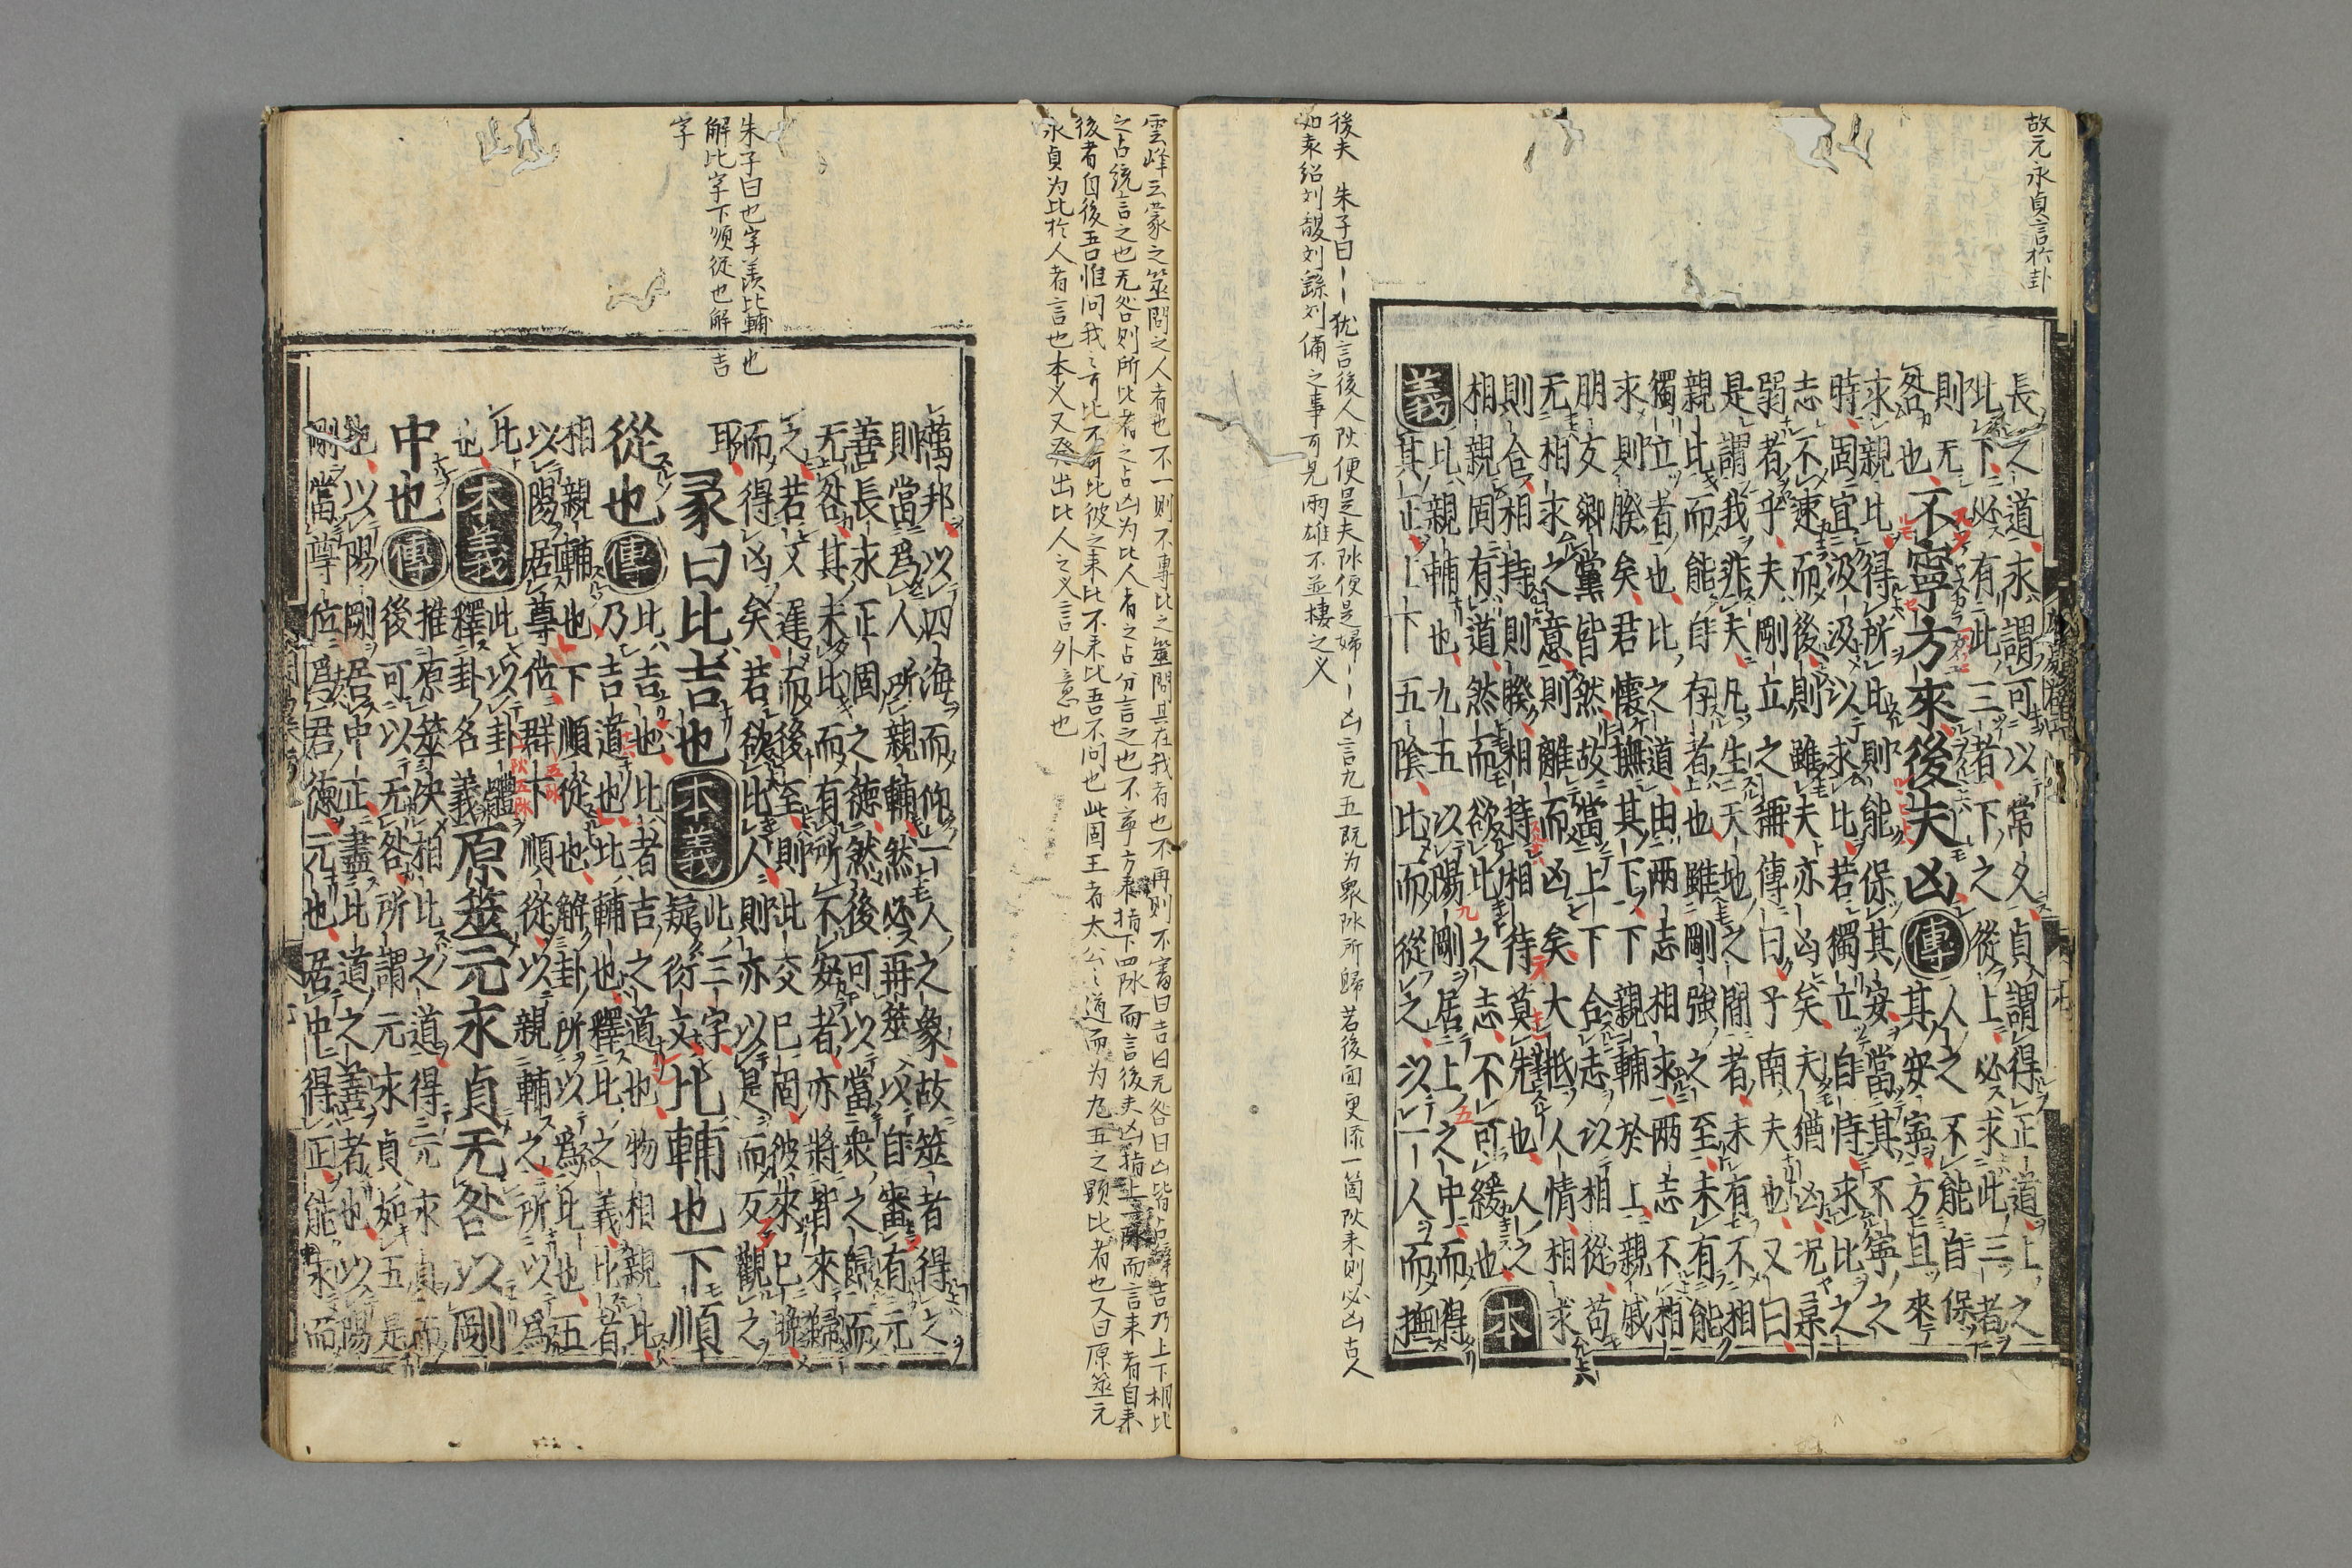 故元永貞言於卦
長之道求謂可以常夂貞謂得正道上之
比下必有此三者下之從上必求此三者
則无
咎也
不寧方來後夫凶
傳
人之不能自保
其安寧方且來
求親比得所比則能保其安當其不寧之
時固宜汲汲以求比若獨立自恃求比之
志不速而後則雖夫亦凶矣夫猶凶況柔
弱者乎夫剛立之稱傳曰子南夫也又曰
是謂我非夫凡生天地之間者未有不相
親比而能自存者也雖剛強之至未有能
獨立者也比之道由兩志相求兩志不相
求則睽矣君懷撫其下下親輔於上親戚
朋友鄉黨皆然故當上下合志以相從苟
无相求之意則離而凶矣大抵人情相求
則合相持則睽相持相待莫先也人之
相親固有道然而欲比之志不可緩也
本義
比親輔也九五以陽剛居上之中而得
其正上下五陰比而從之以一人而撫
後夫 朱子曰——犹言後人阦便是夫阥便是婦——凶言九五既为衆阥所歸若後面更添一箇阦来則必凶古人
如袁绍刘馥刘繇刘備之事可見兩雄不並棲之义
雲峰云蒙之筮問之人者也不一則不專比之筮問其在我者也不再則不審曰吉曰元咎曰凶皆占辭吉乃上下相比
之占統言之也无咎則所比者之占凶为比人者之占分言之也不寧方来指下四阥而言後夫凶指上一阥而言来者自来
後者自後吾惟问我之可比不可比彼之来比不来比吾不问也此固王者大公之道而为九五之顕比者也又曰原筮元
永貞为比於人者言也本义又發出比人之义言外意也
朱子曰也字羡比輔也
解比字下順従也解吉
字
萬邦以四海而仰一人之象故筮者得之
則當爲人所親輔然必再筮以自審有元
善長永正固之德然後可以當衆之歸而
无咎其未比而有所不安者亦將皆來歸
之若又遲而後至則此交已固彼來已晚
而得凶矣若欲比人則亦以是而反觀之
耳
彖曰比吉也
本義
此三字
疑衍文
比輔也下順
從也
傳
比吉也比者吉之道也物相親比
乃吉道也比輔也釋比之義比者
相親輔也下順從也解卦所以爲比也五
以陽居尊位群下順從以親輔之所以爲
比
也
本義
此以卦體
釋卦名義
原筮元永貞无咎以剛
中也
傳
推原筮決相比之道得元永貞而
後可以无咎所謂元永貞如五是
也以陽剛居中正盡比道之善者也以陽
剛當尊位爲君德元也居中得正能永而